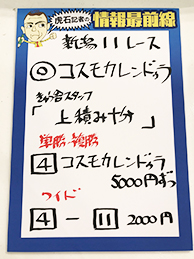 虎石記者の
情報最前線
新潟11レース
◎コスモカレンドゥラ
きゅう舎スタッフ
「上積み十分」
単勝・複勝
4 コスモカレンドゥラ
5000円ずつ
ワイド
4 − 11 2000円